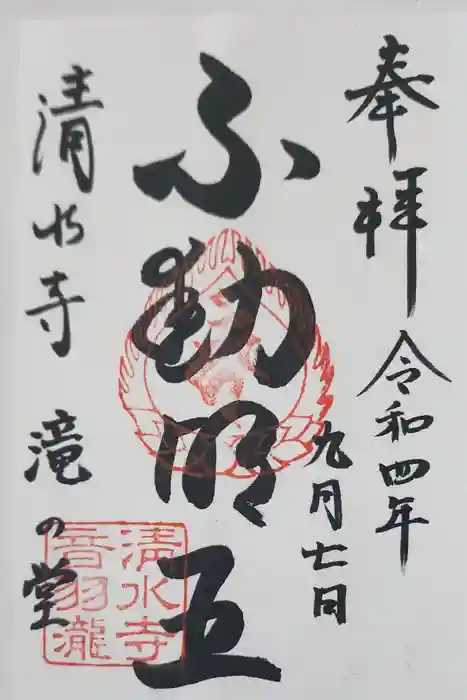 奉拝
令和四年
九月七日
不動明王
清水寺 滝の堂
清水寺
音羽瀧